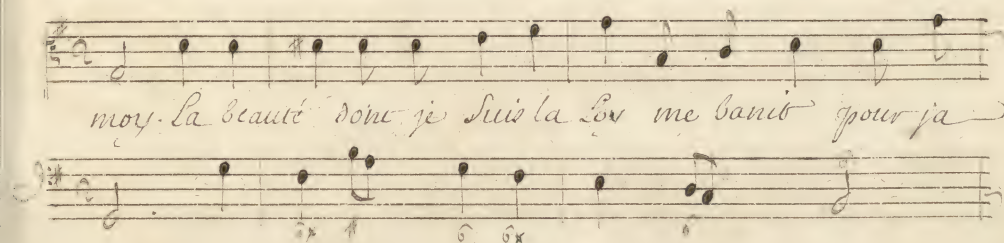 moy. La beauté dont je Suis la Loy me banit pour ja
6x # 6 6x 6